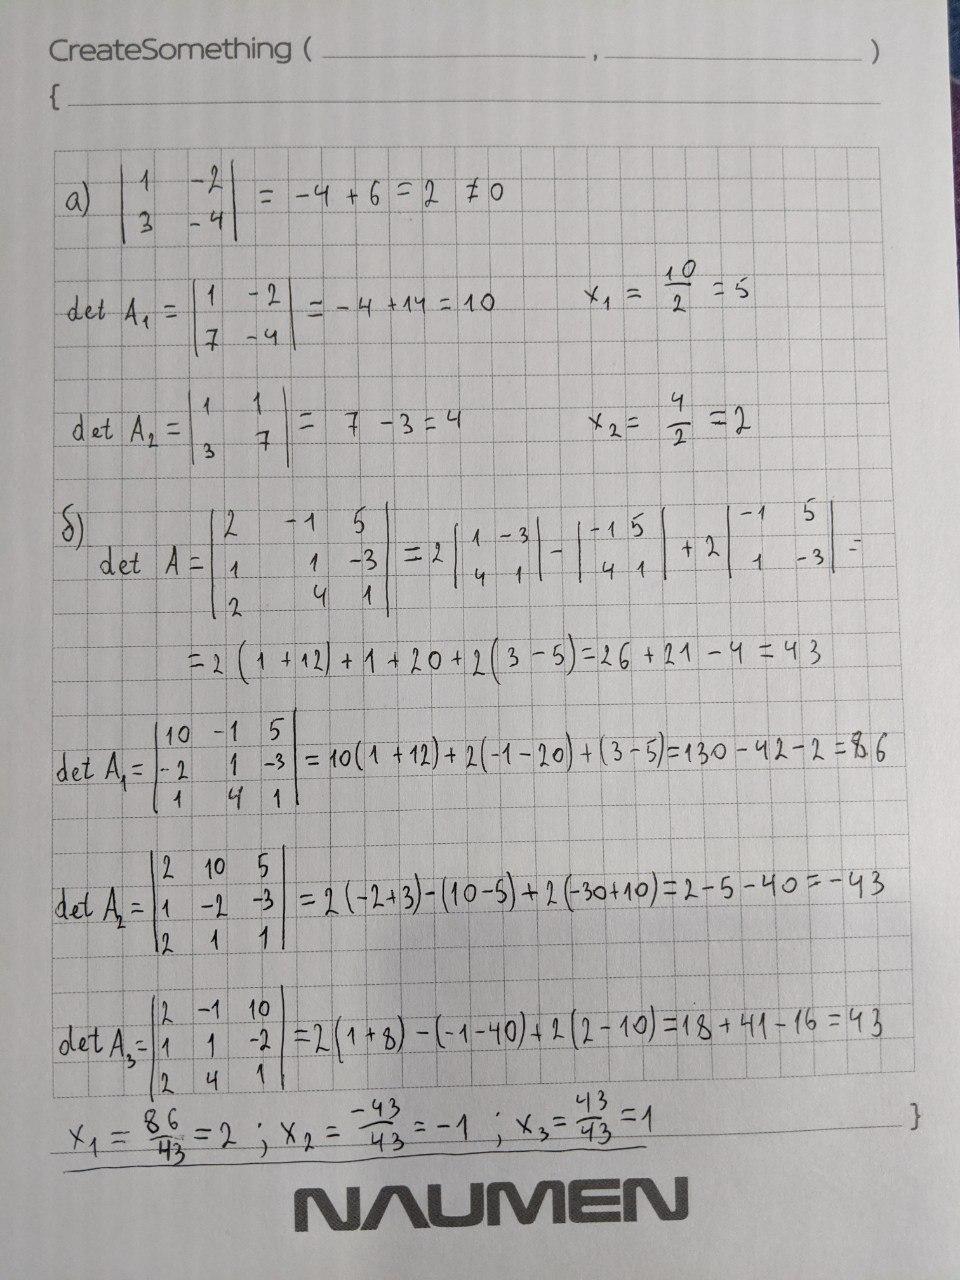 CreateSomething ( , )
{
а) | 1 -2 ; 3 -4 | = -4 + 6 = 2 ≠ 0
det A₁ = | 1 -2 ; 7 -4 | = -4 + 14 = 10 x₁ = 10/2 = 5
det A₂ = | 1 1 ; 3 7 | = 7 - 3 = 4 x₂ = 4/2 = 2
б) det A = | 2 -1 5 ; 1 1 -3 ; 2 4 1 | = 2 | 1 -3 ; 4 1 | - | -1 5 ; 4 1 | + 2 | -1 5 ; 1 -3 | =
= 2 (1 + 12) + 1 + 20 + 2 (3 - 5) = 26 + 21 - 4 = 43
det A₁ = | 10 -1 5 ; -2 1 -3 ; 1 4 1 | = 10(1 + 12) + 2(-1 - 20) + (3 - 5) = 130 - 42 - 2 = 86
det A₂ = | 2 10 5 ; 1 -2 -3 ; 2 1 1 | = 2(-2+3) - (10-5) + 2(-30+10) = 2 - 5 - 40 = -43
det A₃ = | 2 -1 10 ; 1 1 -2 ; 2 4 1 | = 2(1+8) - (-1-40) + 2(2-10) = 18 + 41 - 16 = 43
x₁ = 86/43 = 2 ; x₂ = -43/43 = -1 ; x₃ = 43/43 = 1 }
NAUMEN